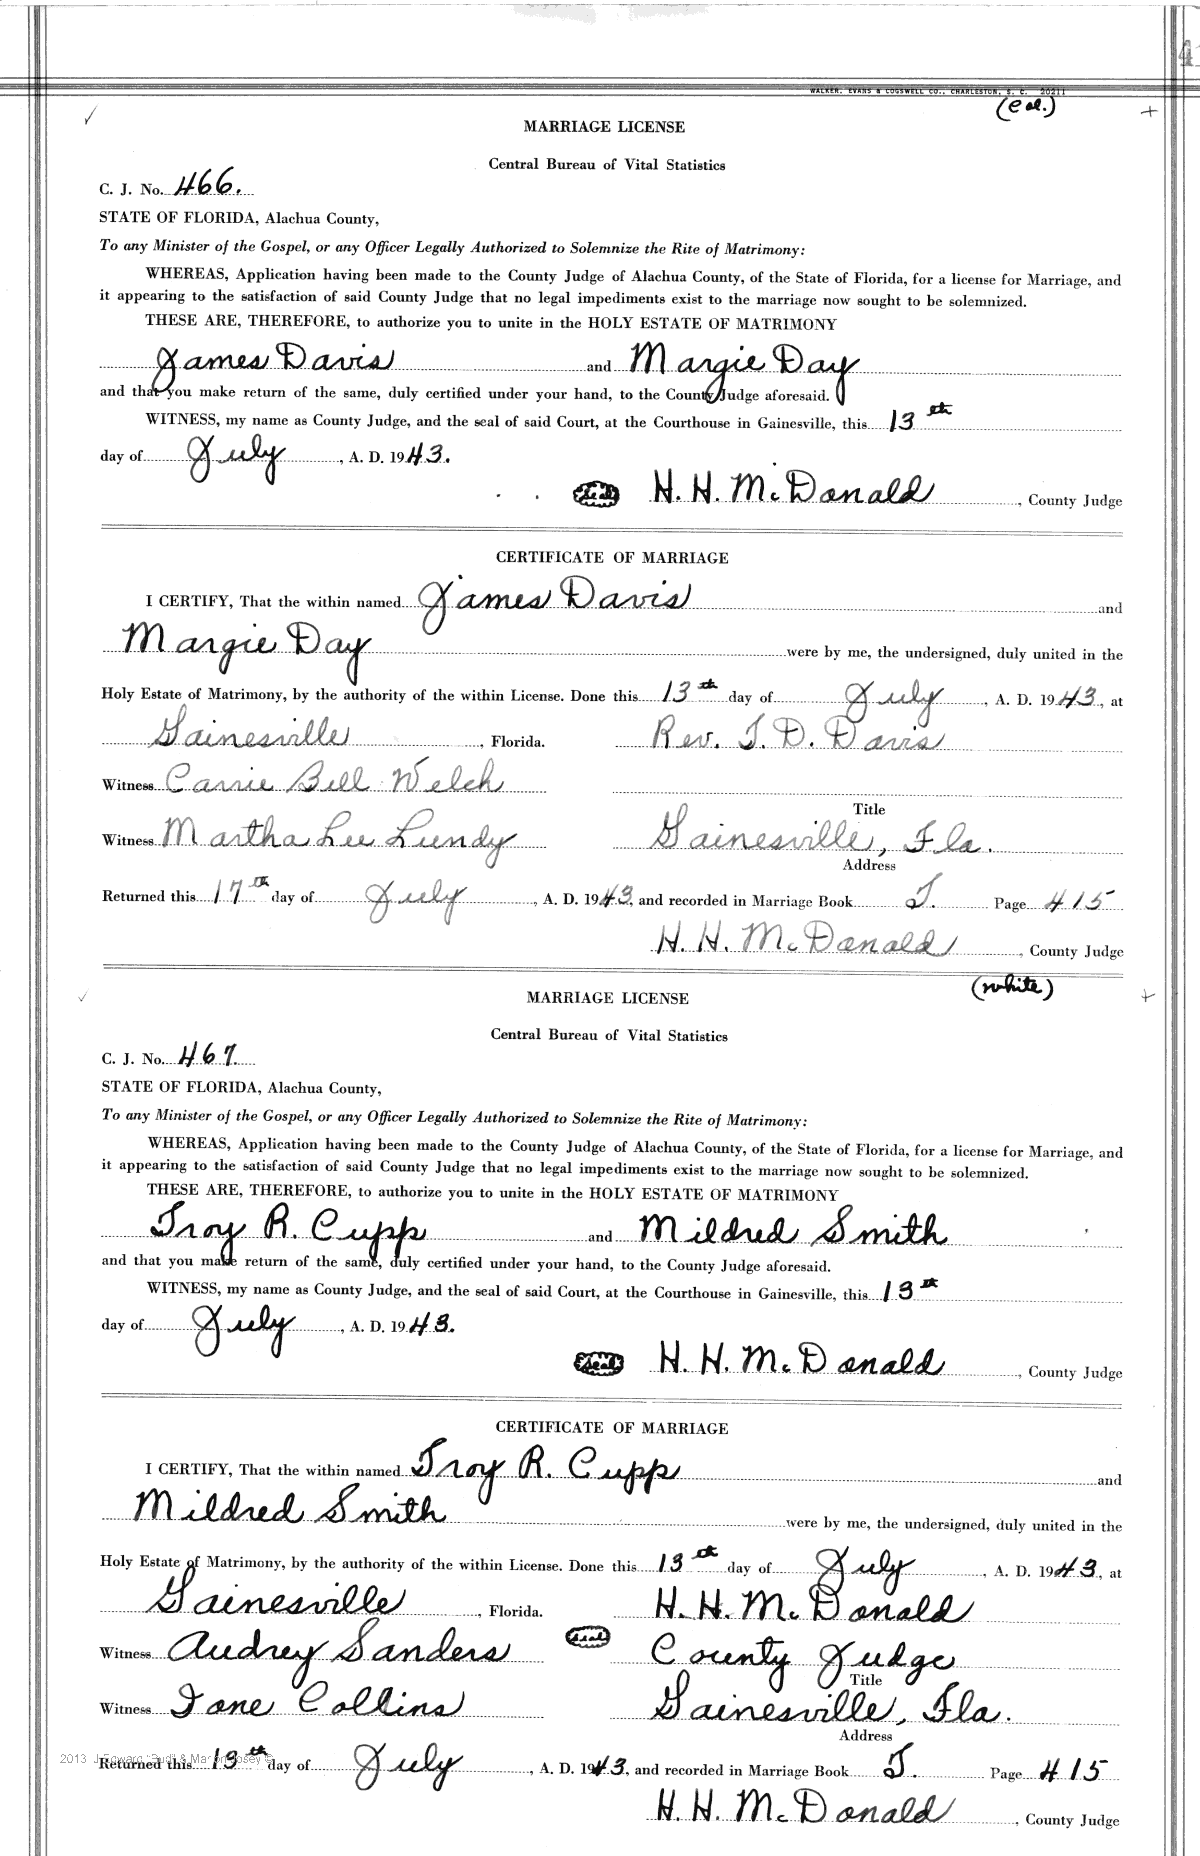 WALKER, EVANS & COGSWELL CO., CHARLESTON, S. C. 20211
(Col.)
MARRIAGE LICENSE
Central Bureau of Vital Statistics
C. J. No. 466.
STATE OF FLORIDA, Alachua County,
To any Minister of the Gospel, or any Officer Legally Authorized to Solemnize the Rite of Matrimony:
WHEREAS, Application having been made to the County Judge of Alachua County, of the State of Florida, for a license for Marriage, and
it appearing to the satisfaction of said County Judge that no legal impediments exist to the marriage now sought to be solemnized.
THESE ARE, THEREFORE, to authorize you to unite in the HOLY ESTATE OF MATRIMONY
James Davis and Margie Day
and that you make return of the same, duly certified under your hand, to the County Judge aforesaid.
WITNESS, my name as County Judge, and the seal of said Court, at the Courthouse in Gainesville, this 13th
day of July, A. D. 1943.
(seal) H. H. McDonald, County Judge
CERTIFICATE OF MARRIAGE
I CERTIFY, That the within named James Davis and
Margie Day were by me, the undersigned, duly united in the
Holy Estate of Matrimony, by the authority of the within License. Done this 13th day of July, A. D. 1943, at
Gainesville, Florida. Rev. T. D. Davis
Witness Carrie Bell Welch
Title
Witness Martha Lee Lundy Gainesville, Fla.
Address
Returned this 17th day of July, A. D. 1943, and recorded in Marriage Book T. Page 415
H. H. McDonald, County Judge
(white)
MARRIAGE LICENSE
Central Bureau of Vital Statistics
C. J. No. 467.
STATE OF FLORIDA, Alachua County,
To any Minister of the Gospel, or any Officer Legally Authorized to Solemnize the Rite of Matrimony:
WHEREAS, Application having been made to the County Judge of Alachua County, of the State of Florida, for a license for Marriage, and
it appearing to the satisfaction of said County Judge that no legal impediments exist to the marriage now sought to be solemnized.
THESE ARE, THEREFORE, to authorize you to unite in the HOLY ESTATE OF MATRIMONY
Troy R. Cupp and Mildred Smith
and that you make return of the same, duly certified under your hand, to the County Judge aforesaid.
WITNESS, my name as County Judge, and the seal of said Court, at the Courthouse in Gainesville, this 13th
day of July, A. D. 1943.
(seal) H. H. McDonald, County Judge
CERTIFICATE OF MARRIAGE
I CERTIFY, That the within named Troy R. Cupp and
Mildred Smith were by me, the undersigned, duly united in the
Holy Estate of Matrimony, by the authority of the within License. Done this 13th day of July, A. D. 1943, at
Gainesville, Florida. H. H. McDonald
Witness Audrey Sanders (seal) County Judge
Title
Witness Ione Collins Gainesville, Fla.
Address
Returned this 13th day of July, A. D. 1943, and recorded in Marriage Book T. Page 415
H. H. McDonald, County Judge